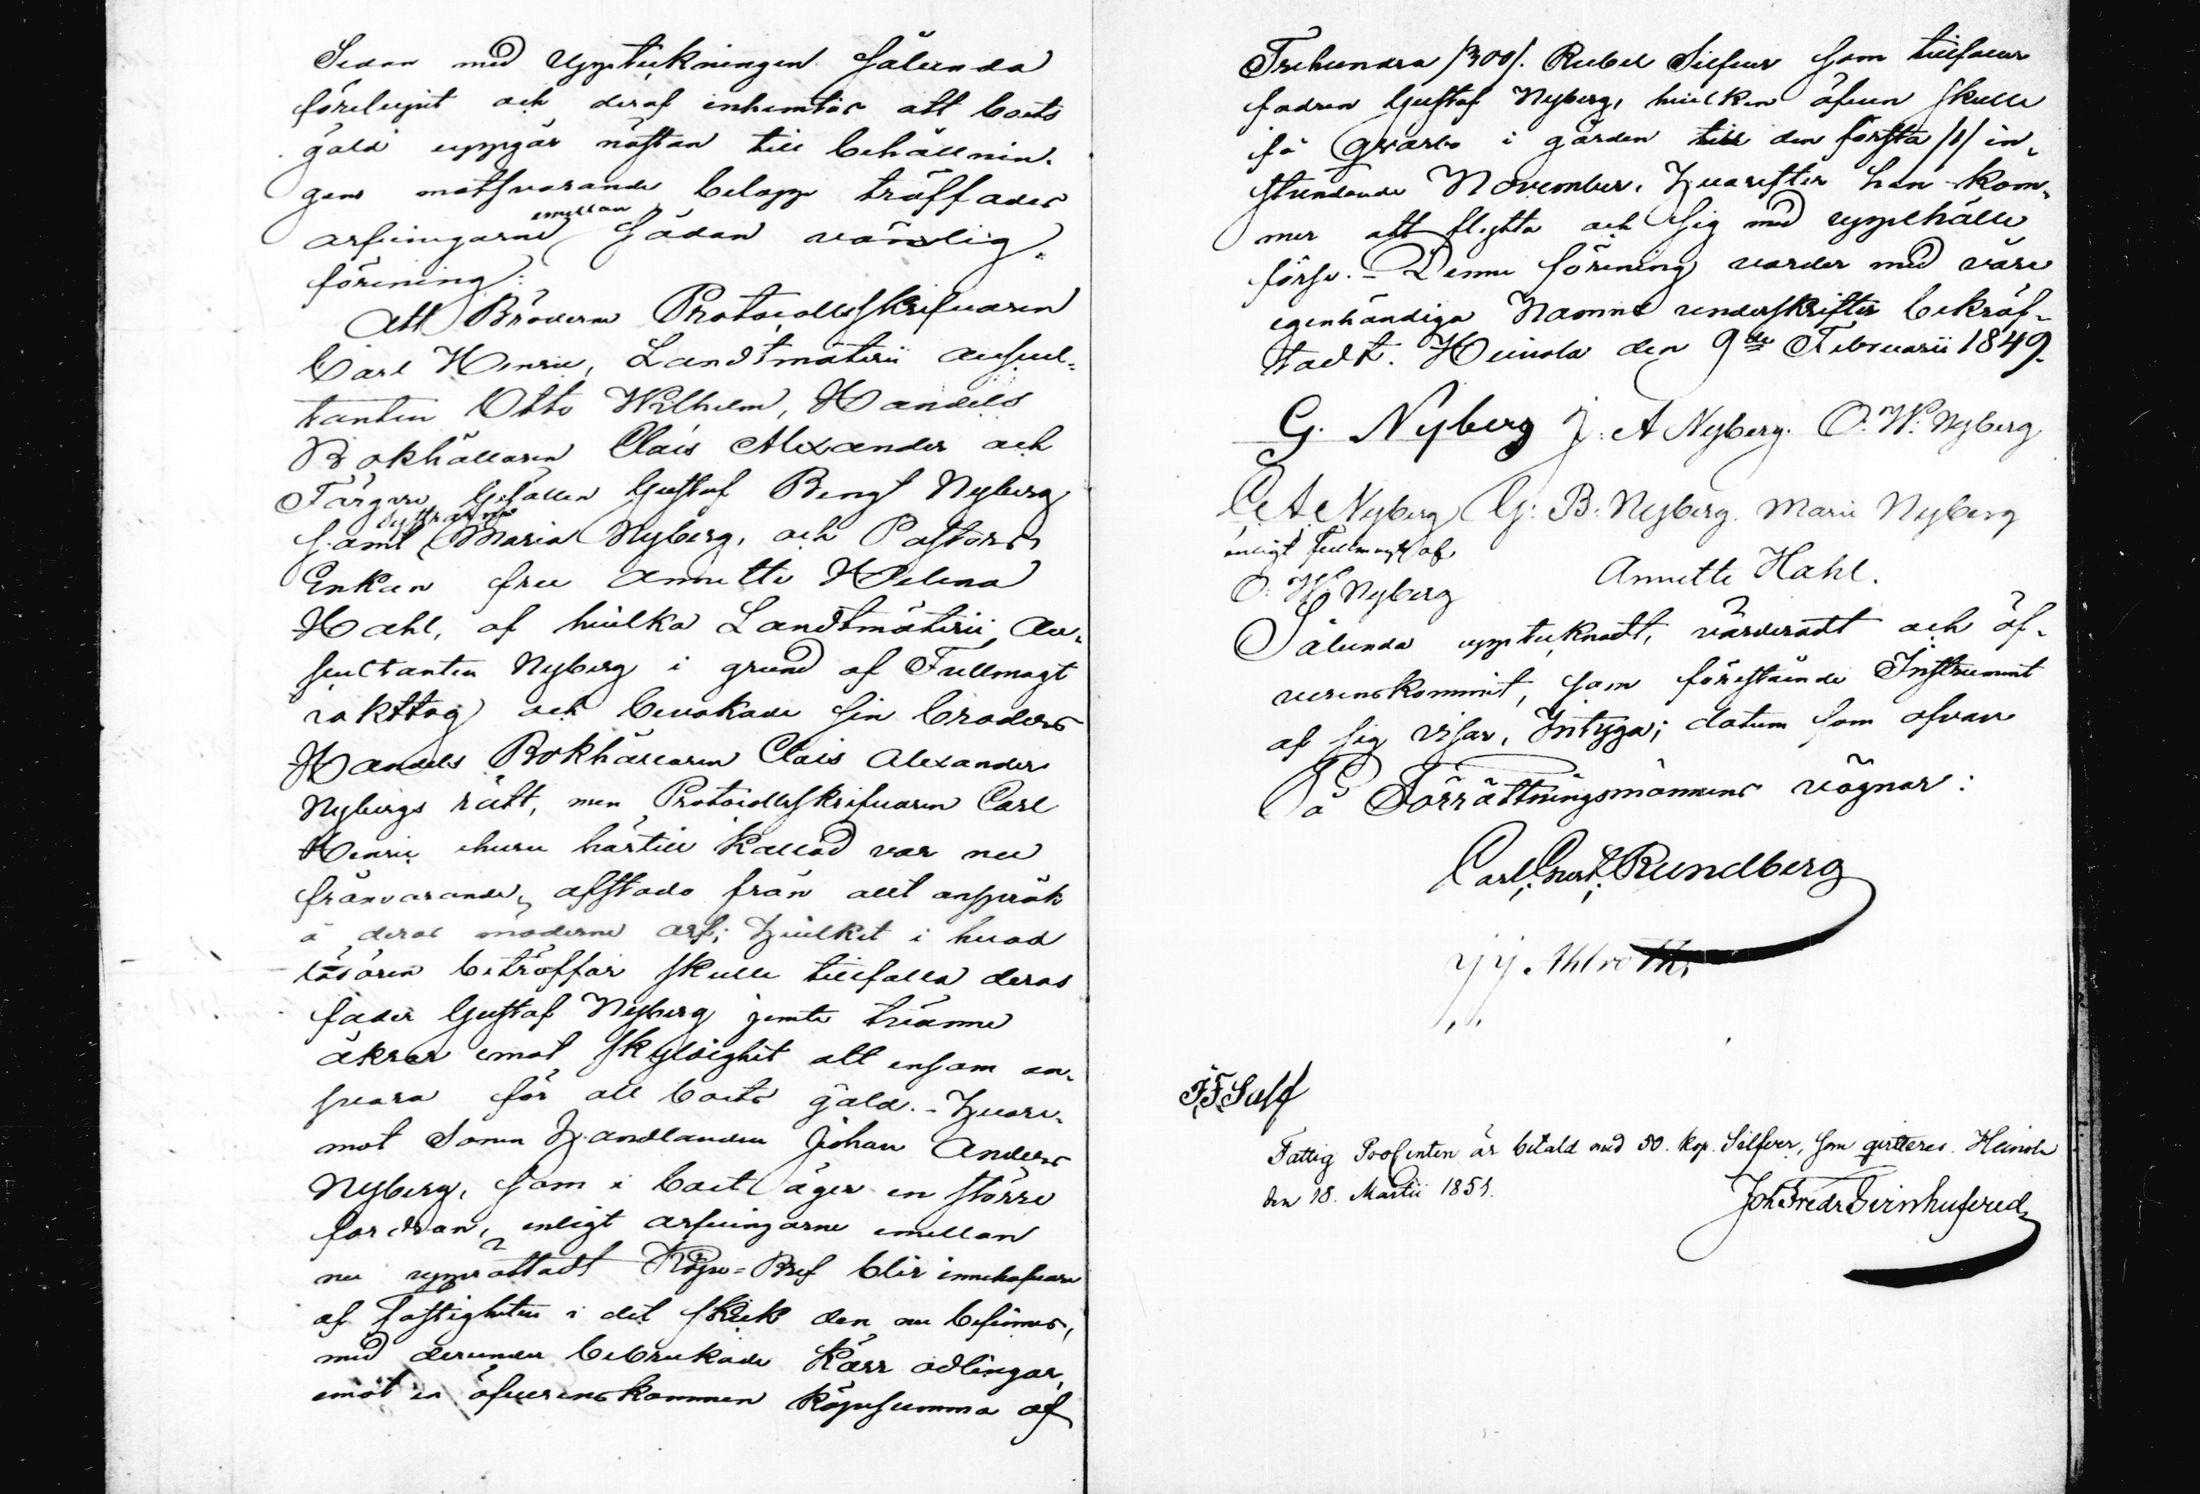 Sedan med uppteckningen sålunda
förelupit och deraf inhemtas att boets
gäld uppgår nästan till behållnin-
gens motsvarande belopp träffades
arfvingarne emellan sådan vänlig
förening:
Att Bröderne Protocollsskrifvaren
Carl Henric, Landtmäterii Auscul-
tanten Otto Wilhelm, Handels
Bokhållaren Clais Alexander och
Färgare Gesällen Gustaf Bengt Nyberg
samt Systrarne Maria Nyberg, och Pastors
Enkan fru Annette Helena
Hahl, af hvilka Landtmäterii Au-
scultanten Nyberg i grund af Fullmagt
iakttog och bevakade sin broders
Handels Bokhållaren Clais Alexander
Nybergs rätt, men Protocollsskrifvaren Carl
Henric ehuru härtill kallad var nu
frånvarande, afstodo från allt anspråk
å deras möderne arf; Hvilket i hvad
lösören beträffar skulle tillfalla deras
fader Gustaf Nyberg jemte trenne
åkrar emot skyldighet att ensam an-
svara för all boets gäld. - Hvare-
mot Sonen Handlanden Johan Anders
Nyberg, som i boet äger en större
fordran, enligt arfvingarne emellan
nu upprättadt Köpe-Bref blir innehafvare
af fastigheten i det skick den nu befinnes,
med derunder bebrukade Kärr odlingar,
emot en öfverenskommen köpesumma af
Trehundra /300/. Rubel Silfver som tillfaller
fadren Gustaf Nyberg, hvilken äfven skulle
få qvarbo i gården till den första /1/ in-
stundande November, hvarefter han kom-
mer att flytta och sig med uppehälle
förse. - Denna förening varder med våre
egenhändiga Namns underskrifter bekräf-
tadt. Heinola den 9de Februarii 1849.
G. Nyberg J. A Nyberg. O. W. Nyberg
C. A. Nyberg G. B. Nyberg. Marie Nyberg
enligt fullmagt af
O. W. Nyberg Annette Hahl.
Sålunda upptecknadt, värderadt och öf-
verenskommit, som föreståinde Instrument
af sig visar, Intyga; datum som ofvan
På Förrättningsmännens vägnar:
Carl Gust. Rundberg
Fattig Procenten är betald med 50. kop. Silfver, som qvitteras. Heinola
den 18. Martii 1851.